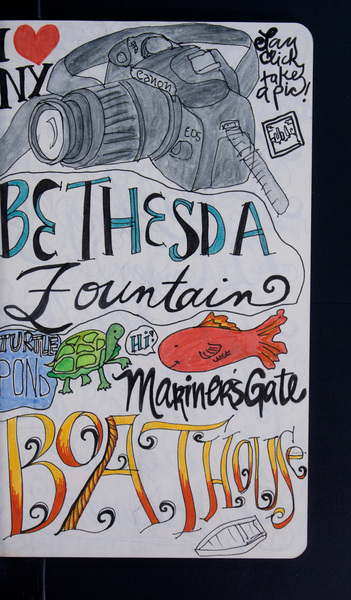 I ❤ NY
Canon
EOS
click,
take
a pic!
BETHESDA
Fountain
TURTLE
POND
Hi!
Mariner's Gate
BOATHOUSE